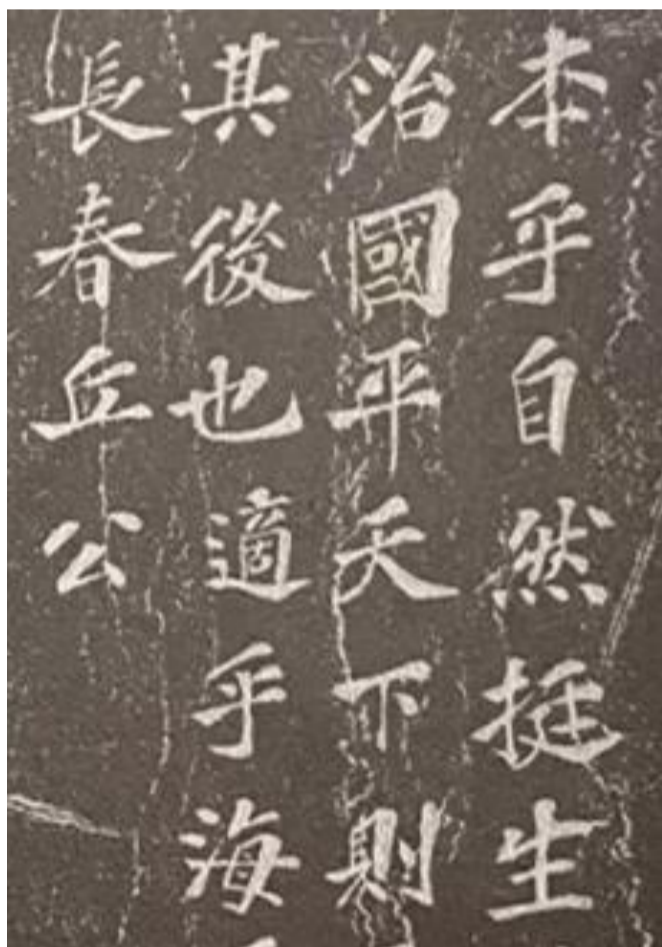 本乎自然挺生
治國平天下則
其後也適乎海
長春丘公